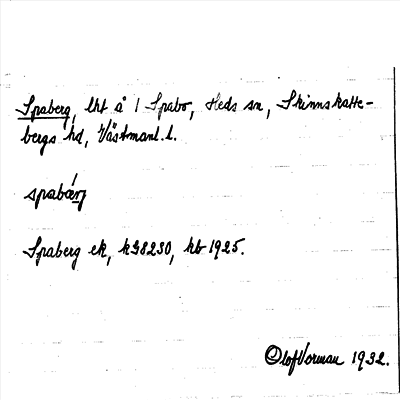 Spaberg, lht å 1 Spabo, Heds sn, Skinnskatte-
bergs hd, Västmanl. l.
spabærj
Spaberg ek, k98230, kb 1925.
Olof Vorman 1932.